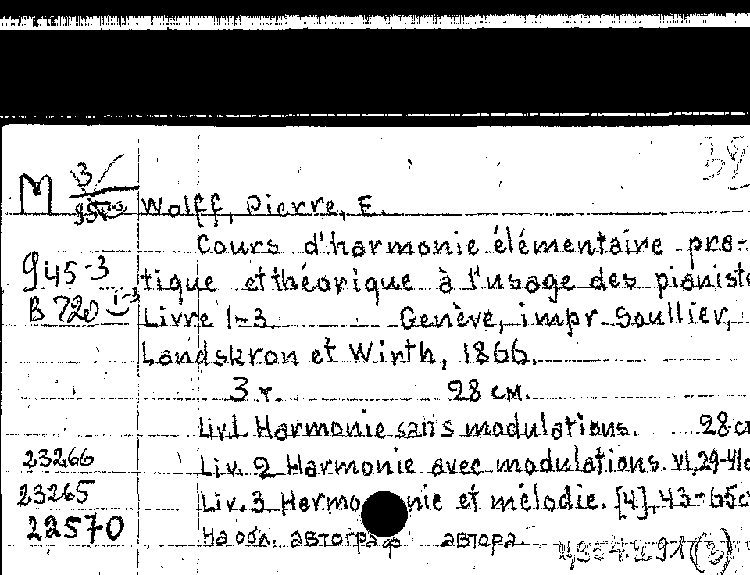 M 3/
Wolff, Pierre, E.
Cours d'harmonie élémentaire pra-
945-3 tique et théorique à l'usage des pianiste
B 720 i-3 Livre 1-3. Genève, impr. Soullier,
Landskron et Wirth, 1866.
3 т. 28 см.
Liv.1. Harmonie sans modulations. 28 с
23266 Liv. 2 Harmonie avec modulations. VI, 29-41с
23265 Liv. 3 Harmonie et mélodie. [4], 43-65с
22570 На обл. автограф автора